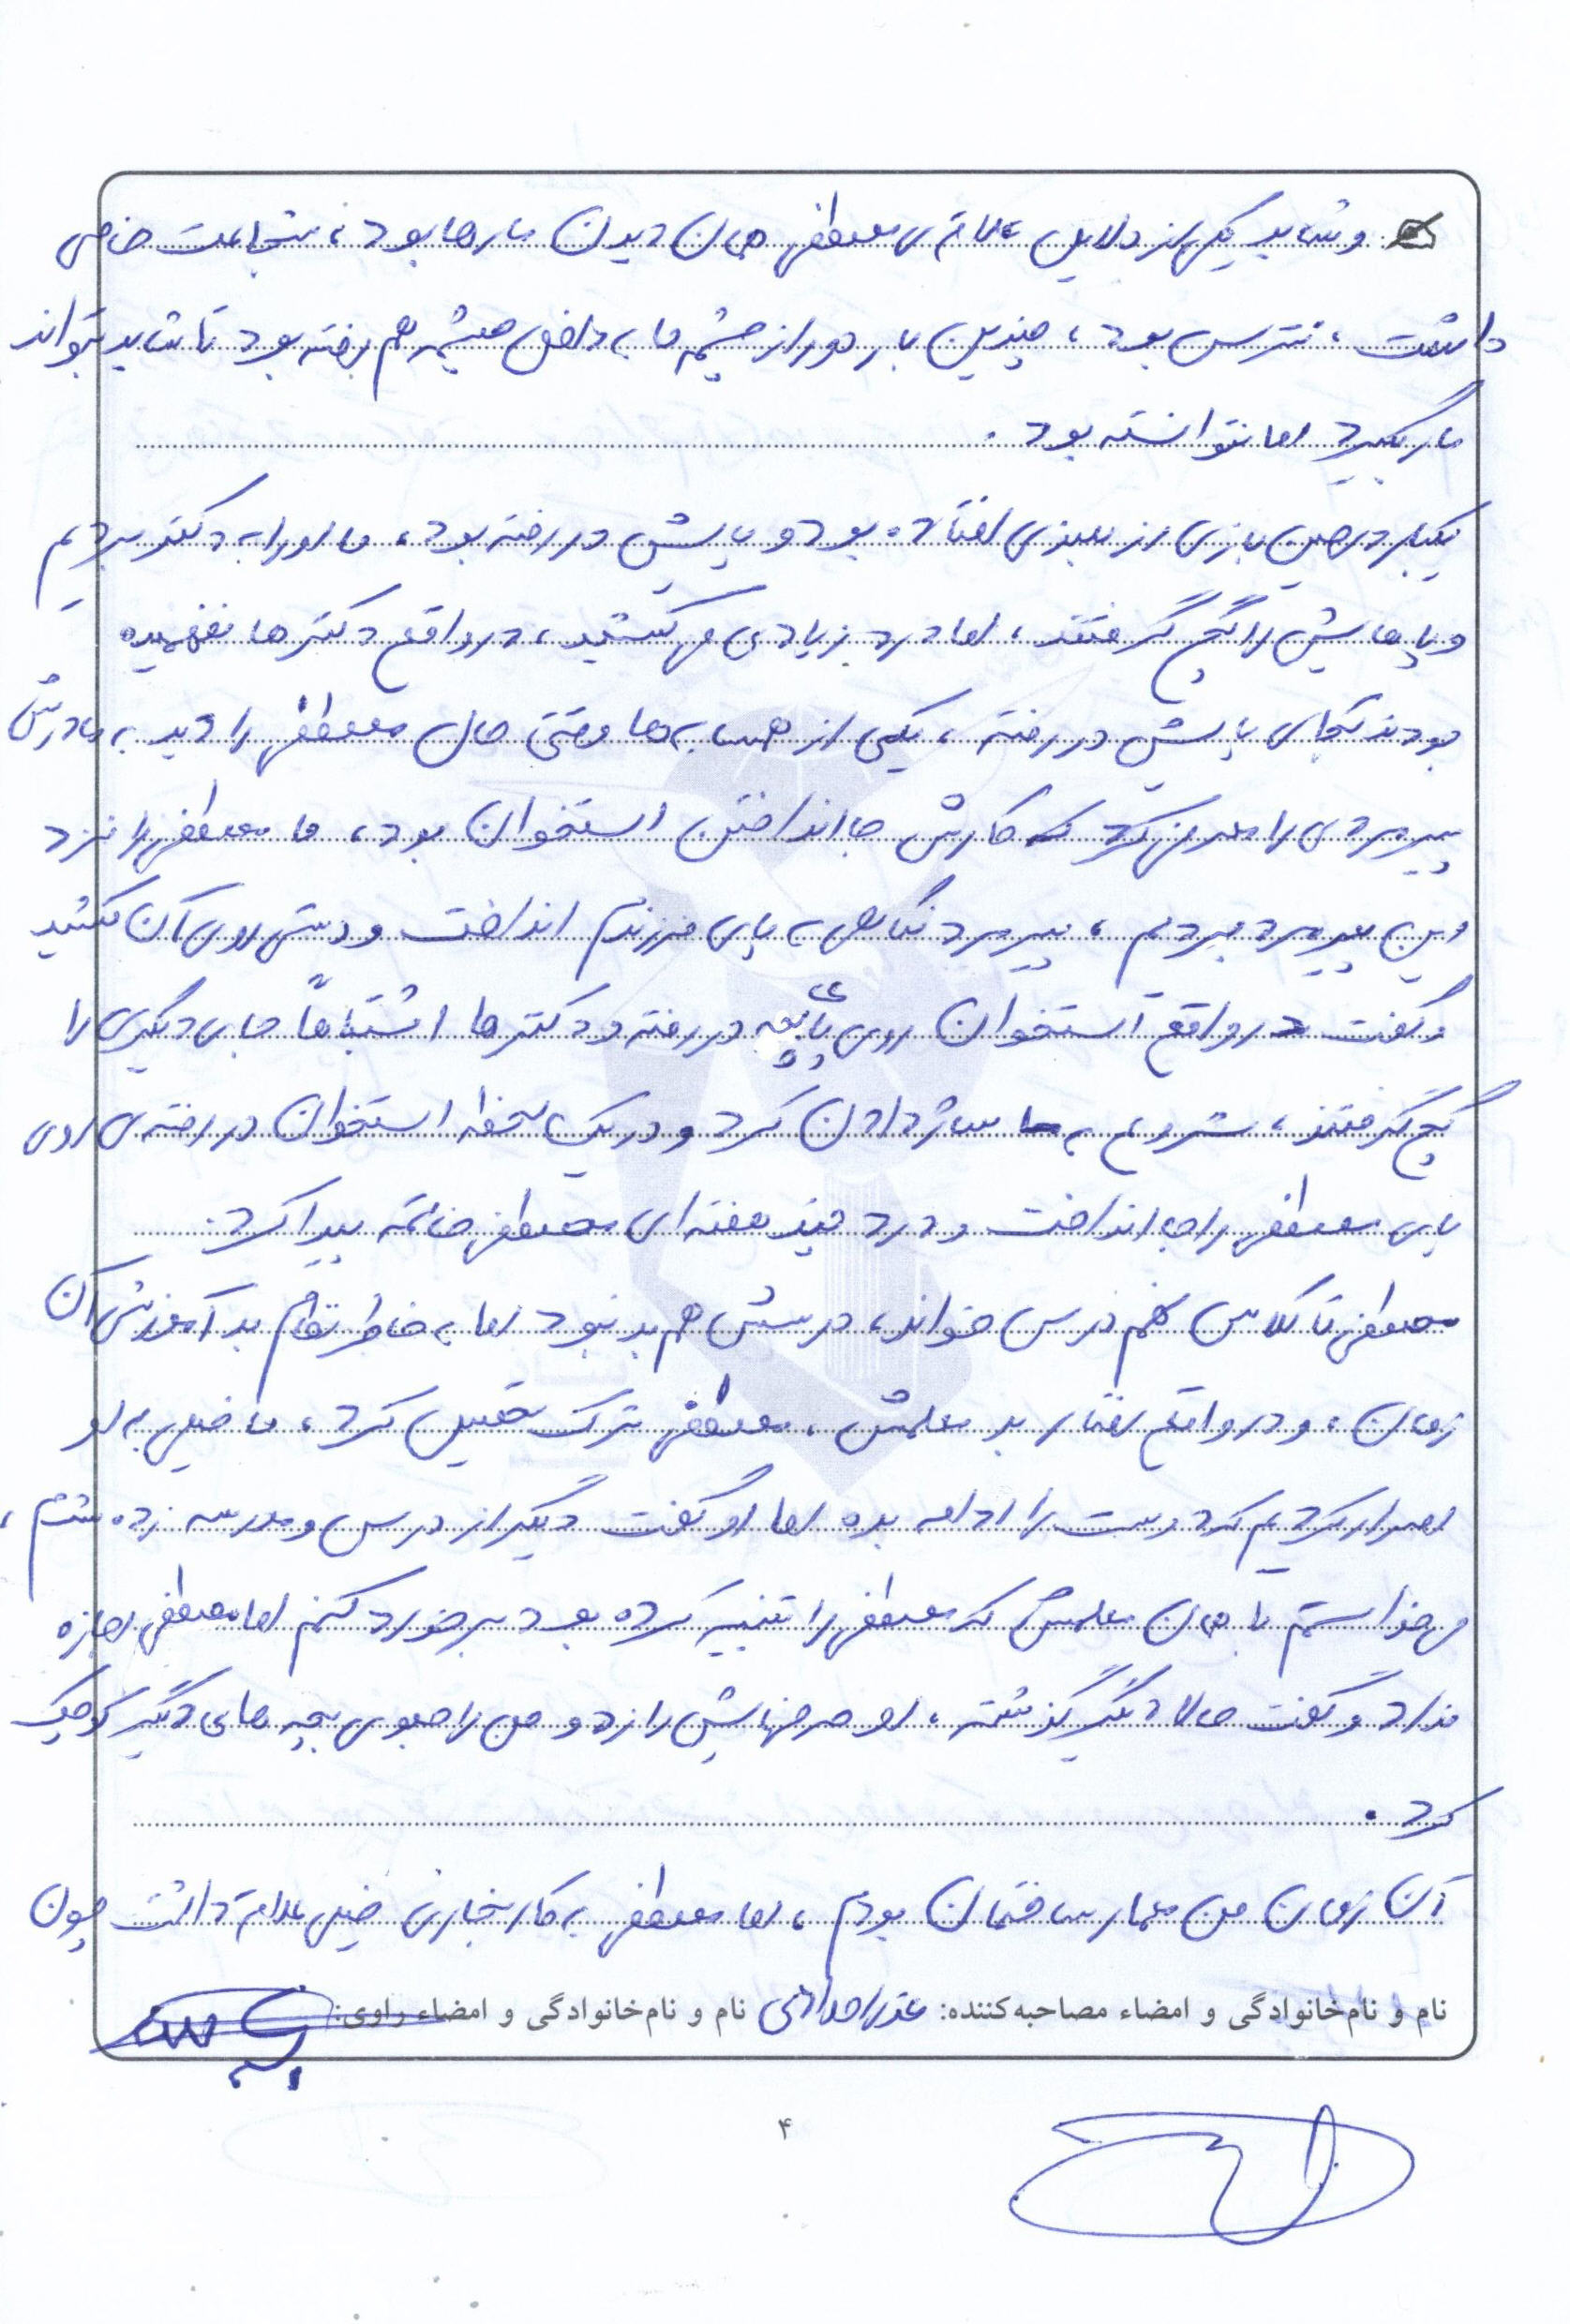 و شاید یکی از دلایل علاقه‌ی مصطفی همان دیدن مارها بود، شجاعت خاصی
داشت، نترس بود، چندین بار دور از چشم ما به داخل چشمه هم رفته بود تا شاید بتواند
مار بگیرد اما نتوانسته بود.
یکبار در حین بازی از بلندی افتاده بود و پایش در رفته بود، ما او را به دکتر بردیم
و پاهایش را گچ گرفتند، اما درد زیادی می‌کشید، در واقع دکترها نفهمیده
بودند کجای پایش در رفته، یکی از همسایه‌ها وقتی حال مصطفی را دید به مادرش
پیرمردی را معرفی کرد که کارش جا انداختن استخوان بود، ما مصطفی را نزد
این پیرمرد بردیم، پیرمرد نگاهی به پای فرزندم انداخت و دستی روی آن کشید
و گفت در واقع استخوان روی پایش در رفته و دکترها اشتباهاً جای دیگری را
گچ گرفتند، شروع به ماساژ دادن کرد و در یک لحظه استخوان در رفته‌ی روی
پای مصطفی را جا انداخت و درد چند هفته‌ای مصطفی خاتمه پیدا کرد.
مصطفی تا کلاس نهم درس خواند، درسش هم بد نبود اما به خاطر نظام بد آموزش آن
زمان، و در واقع رفتار بد معلمش، مصطفی ترک تحصیل کرد، ما خیلی به او
اصرار کردیم که درست را ادامه بده اما او گفت دیگر از درس و مدرسه زده شدم،
می‌خواستم با همان معلمش که مصطفی را تنبیه کرده بود برخورد کنم اما مصطفی اجازه
نداد و گفت حالا دیگر گذشته، او حرفهایش را زد و من را جلوی بچه های دیگر کوچک
کرد.
آن زمان من معمار ساختمان بودم، اما مصطفی به کار نجاری خیلی علاقه داشت چون
نام و نام‌خانوادگی و امضاء مصاحبه‌کننده: عذرا حدادی نام و نام‌خانوادگی و امضاء راوی:
۴